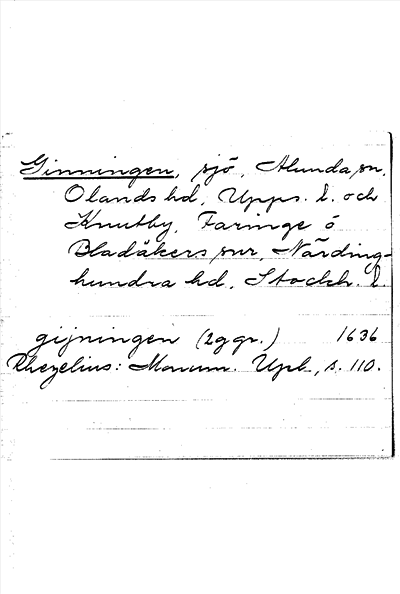 Ginningen, sjö, Alunda sn,
Olands hd, Upps. l. och
Knutby, Faringe o
Bladåkers snr, Närding-
hundra hd, Stockh. l.
gijningen (2ggr.) 1636
Rhezelius: Monum. Upl., s. 110.